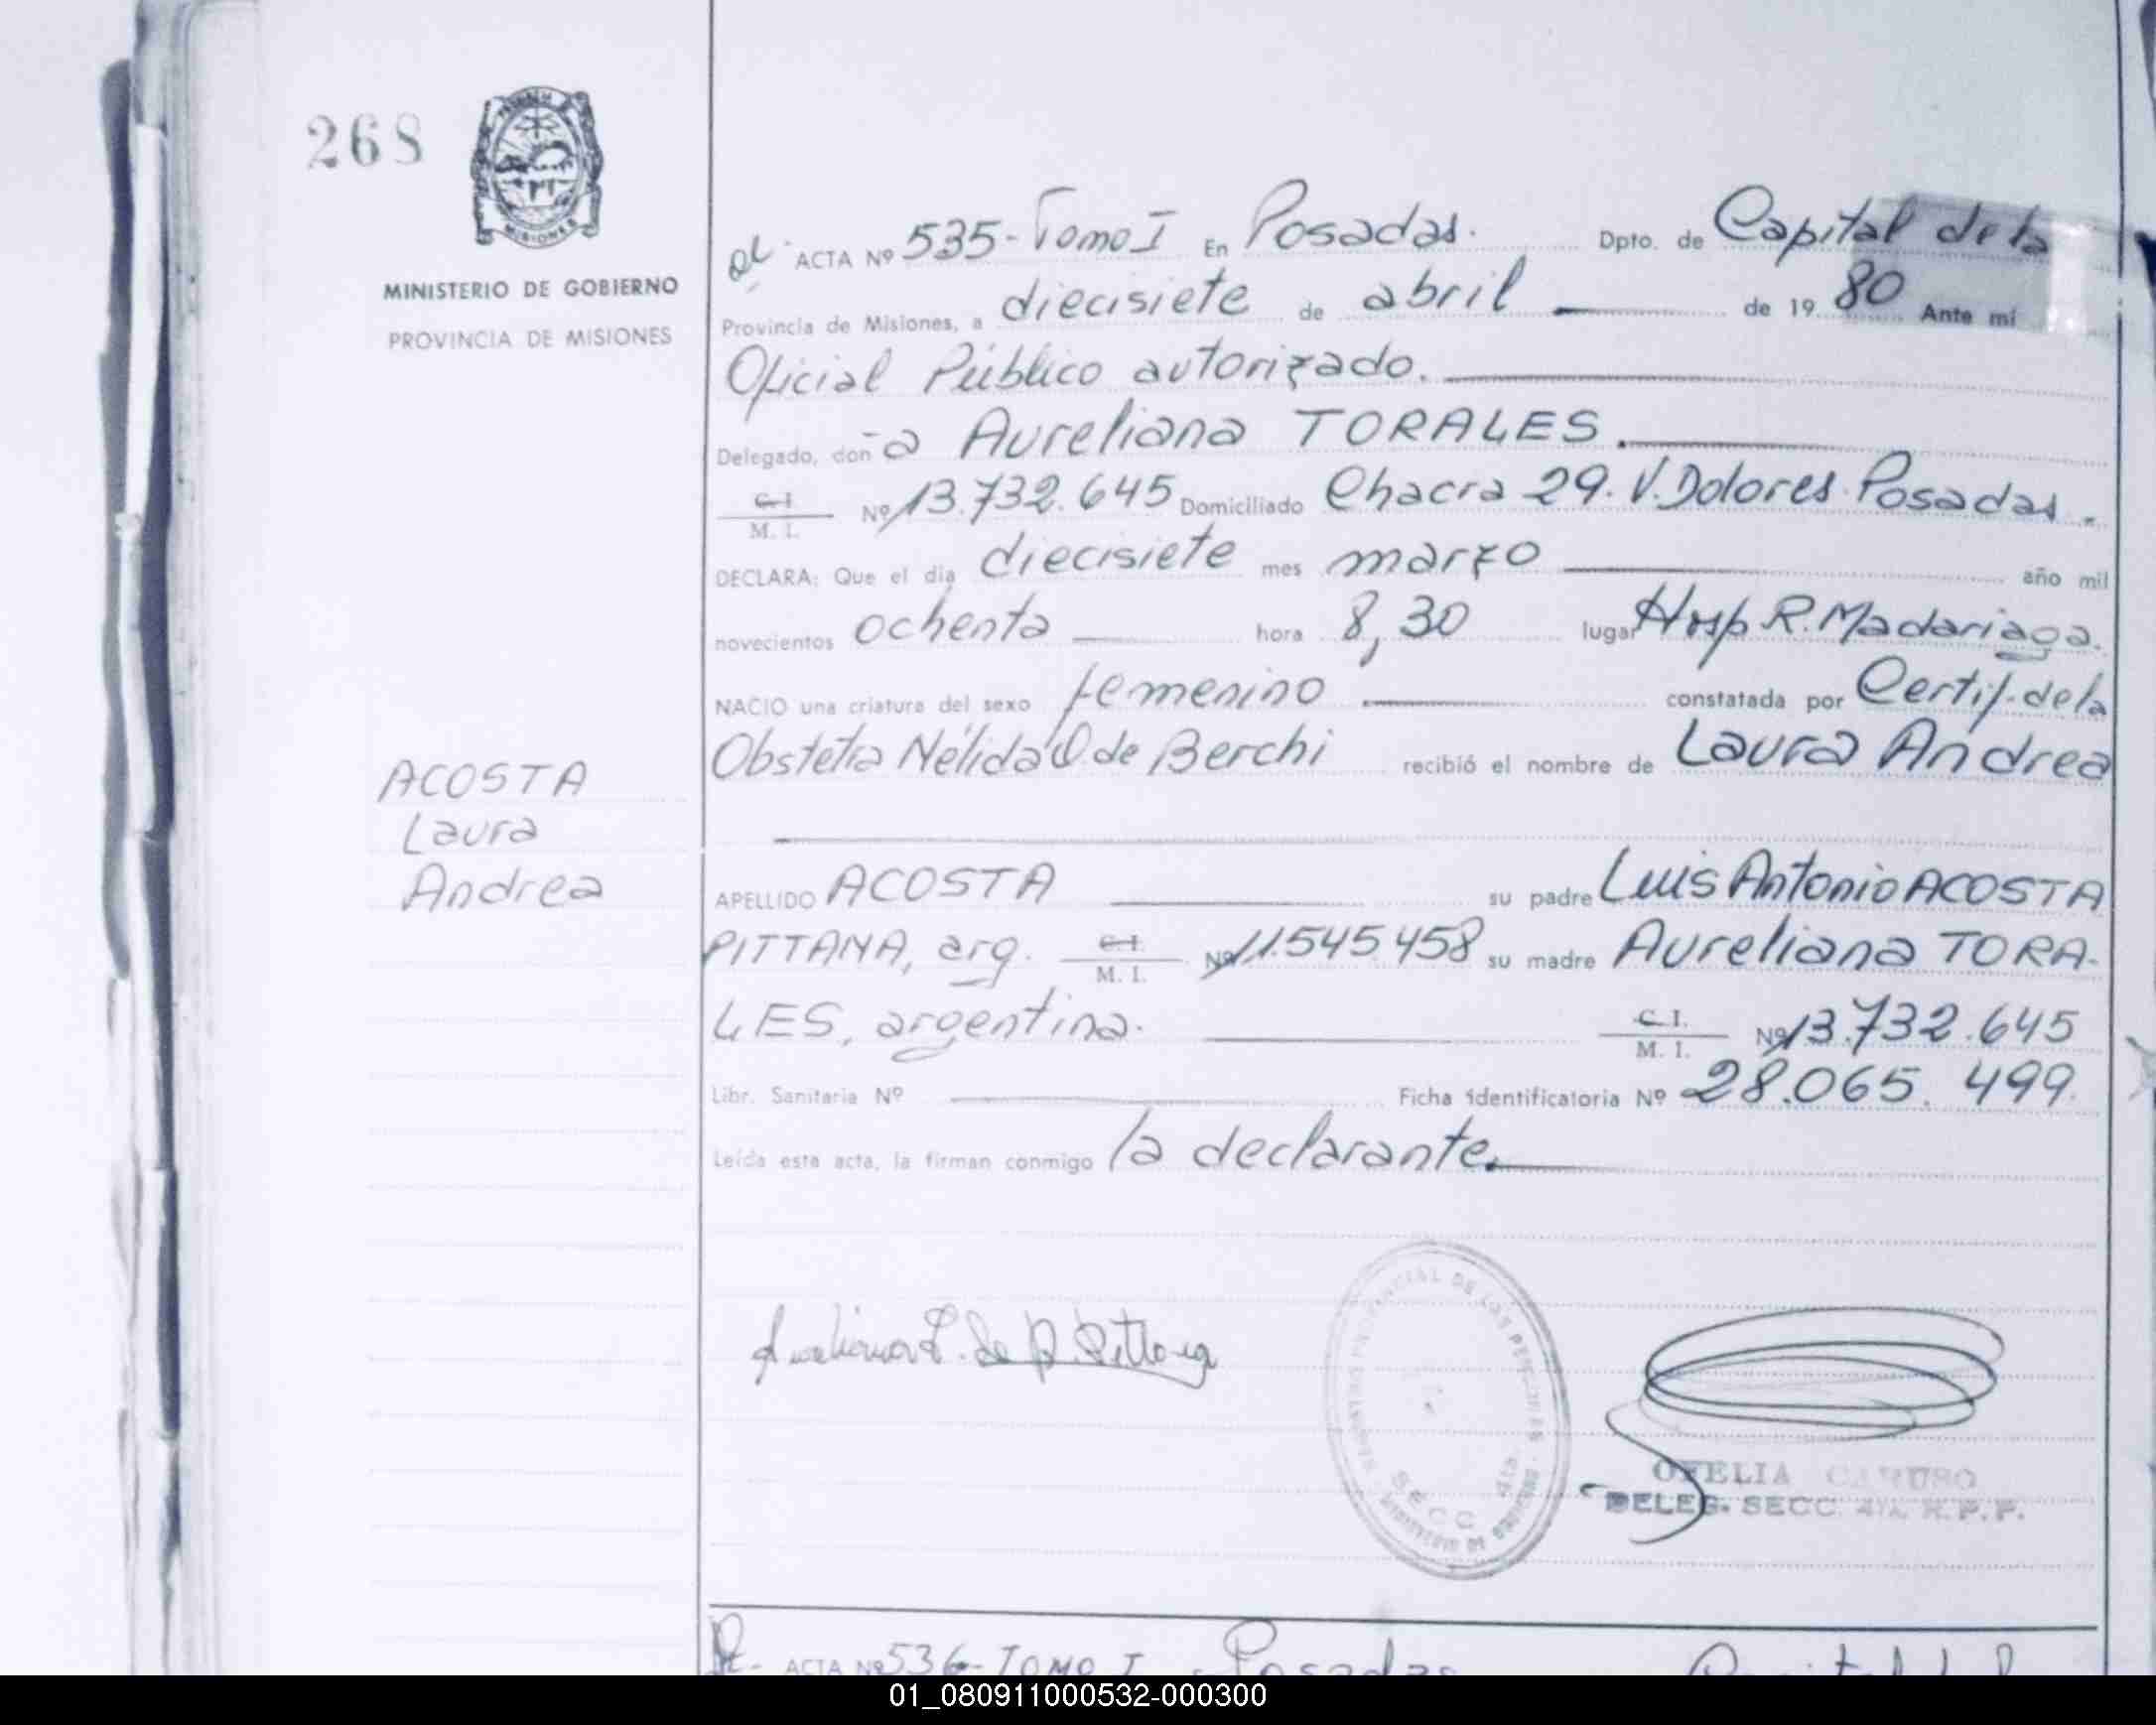 268
MISIONES
MINISTERIO DE GOBIERNO
PROVINCIA DE MISIONES
ACOSTA
Laura
Andrea
ACTA Nº 535-Tomo I En Posadas. Dpto. de Capital de la
Provincia de Misiones, a diecisiete de abril de 19 80 Ante mí
Oficial Público autorizado.
Delegado, doña Aureliana TORALES.
C. I. M. I. Nº 13.732.645 Domiciliado Chacra 29. V. Dolores. Posadas.
DECLARA: Que el día diecisiete mes marzo año mil
novecientos ochenta hora 8,30 lugar Hosp R. Madariaga.
NACIO una criatura del sexo femenino constatada por Certif. de la
Obstetra Nélida O. de Berchi recibió el nombre de Laura Andrea
APELLIDO ACOSTA su padre Luis Antonio ACOSTA
PITTANA, arg. C. I. M. I. Nº 11.545.458 su madre Aureliana TORA-
LES, argentina. C. I. M. I. Nº 13.732.645
Libr. Sanitaria Nº Ficha identificatoria Nº 28.065.499.
Leída esta acta, la firman conmigo la declarante.
DE LAS PERSONAS
SECC 4ta.
OFELIA CARUSO
DELEG. SECC. 4ta. R.P.P.
ACTA Nº 536-TOMO I Posadas
01_080911000532-000300